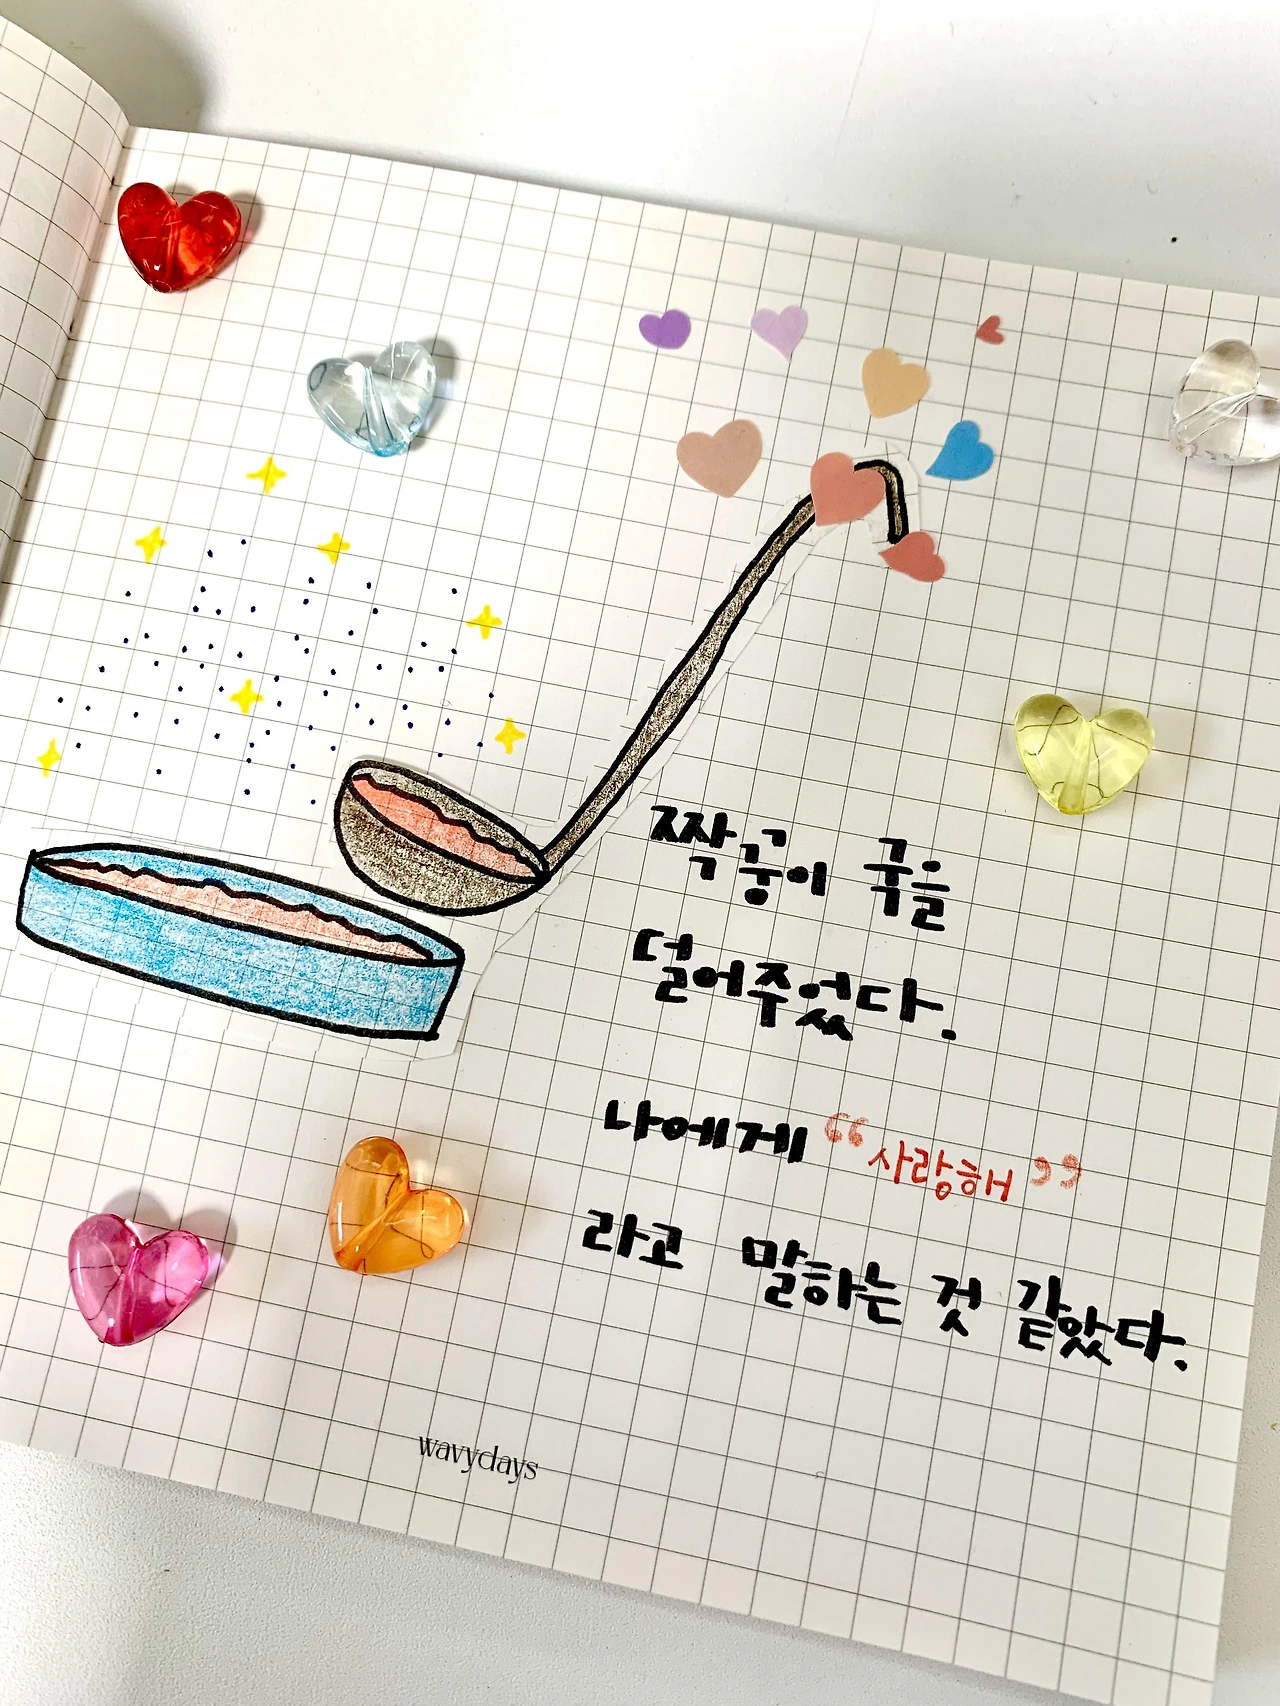 짝꿍이 국을
덜어주었다.
나에게 “사랑해”
라고 말하는 것 같았다.
wavydays